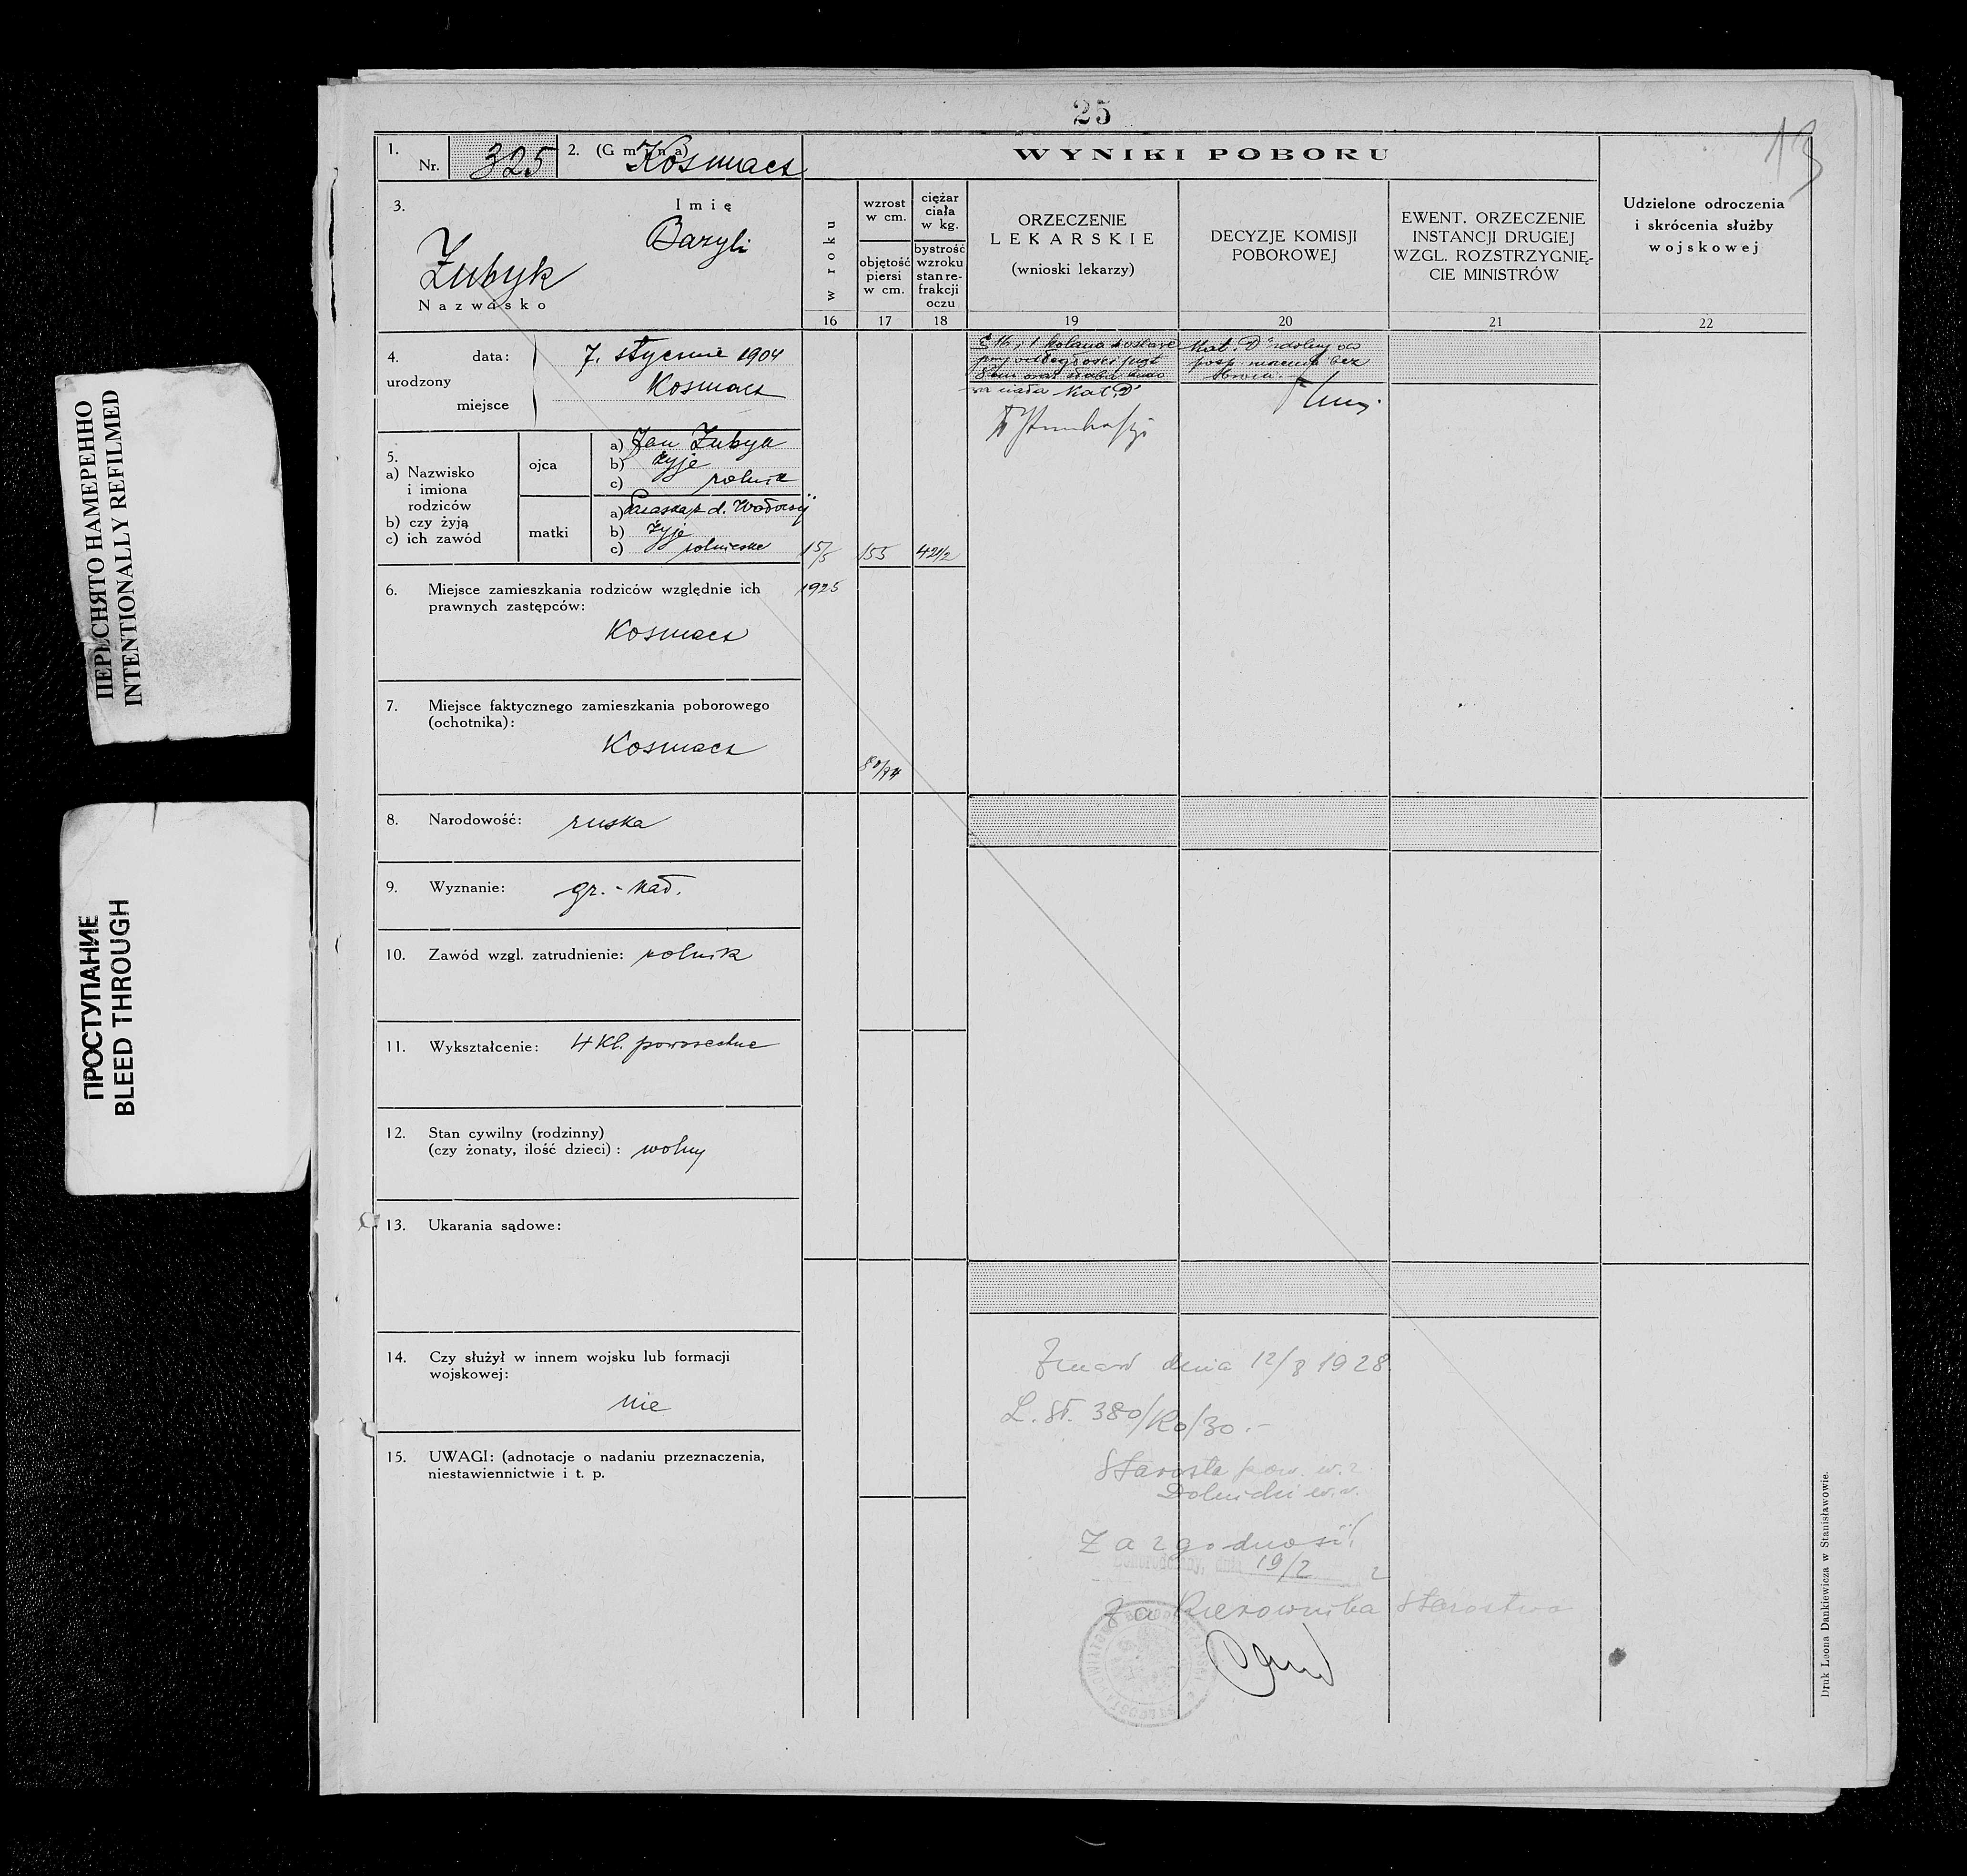 25
13
1. Nr. 325
2. (Gmina) Kosmacz
WYNIKI POBORU
3. Imię
Bazyli
Zubyk
Nazwisko
w roku
wzrost w cm.
objętość piersi w cm.
ciężar ciała w kg.
bystrość wzroku stan refrakcji oczu
ORZECZENIE
LEKARSKIE
(wnioski lekarzy)
DECYZJE KOMISJI
POBOROWEJ
EWENT. ORZECZENIE
INSTANCJI DRUGIEJ
WZGL. ROZSTRZYGNIĘ-
CIE MINISTRÓW
Udzielone odroczenia
i skrócenia służby
wojskowej
16 17 18 19 20 21 22
4. urodzony
data: 7. stycznia 1904
miejsce Kosmacz
kolana
przy odległości
8 cm oraz słaba budo
wa ciała Kat. D
Kat. "D" zdolny do
posp. ruszenia bez
broni.
5.
a) Nazwisko
i imiona
rodziców
b) czy żyją
c) ich zawód
ojca
a) Jan Zubyk
b) żyje
c) rolnik
matki
a) Paraska z d.
b) żyje
c) rolniczka
15/5 155 42 1/2
1925
80/74
6. Miejsce zamieszkania rodziców względnie ich
prawnych zastępców:
Kosmacz
7. Miejsce faktycznego zamieszkania poborowego
(ochotnika):
Kosmacz
8. Narodowość: ruska
9. Wyznanie: gr.-kat.
10. Zawód wzgl. zatrudnienie: rolnik
11. Wykształcenie: 4 kl. powszechne
12. Stan cywilny (rodzinny)
(czy żonaty, ilość dzieci): wolny
13. Ukarania sądowe:
14. Czy służył w innem wojsku lub formacji
wojskowej:
nie
15. UWAGI: (adnotacje o nadaniu przeznaczenia,
niestawiennictwie i t. p.
Zmarł dnia 12/8 1928.
L. st. 380/Ko/30.-
Starosta pow. w.z.
Dolnicki w.r.
Za zgodność!
dnia 19/2
Za Kierownika Starostwa
Druk Leona Dankiewicza w Stanisławowie.
ПЕРЕСНЯТО НАМЕРЕННО
INTENTIONALLY REFILMED
ПРОСТУПАНИЕ
BLEED THROUGH